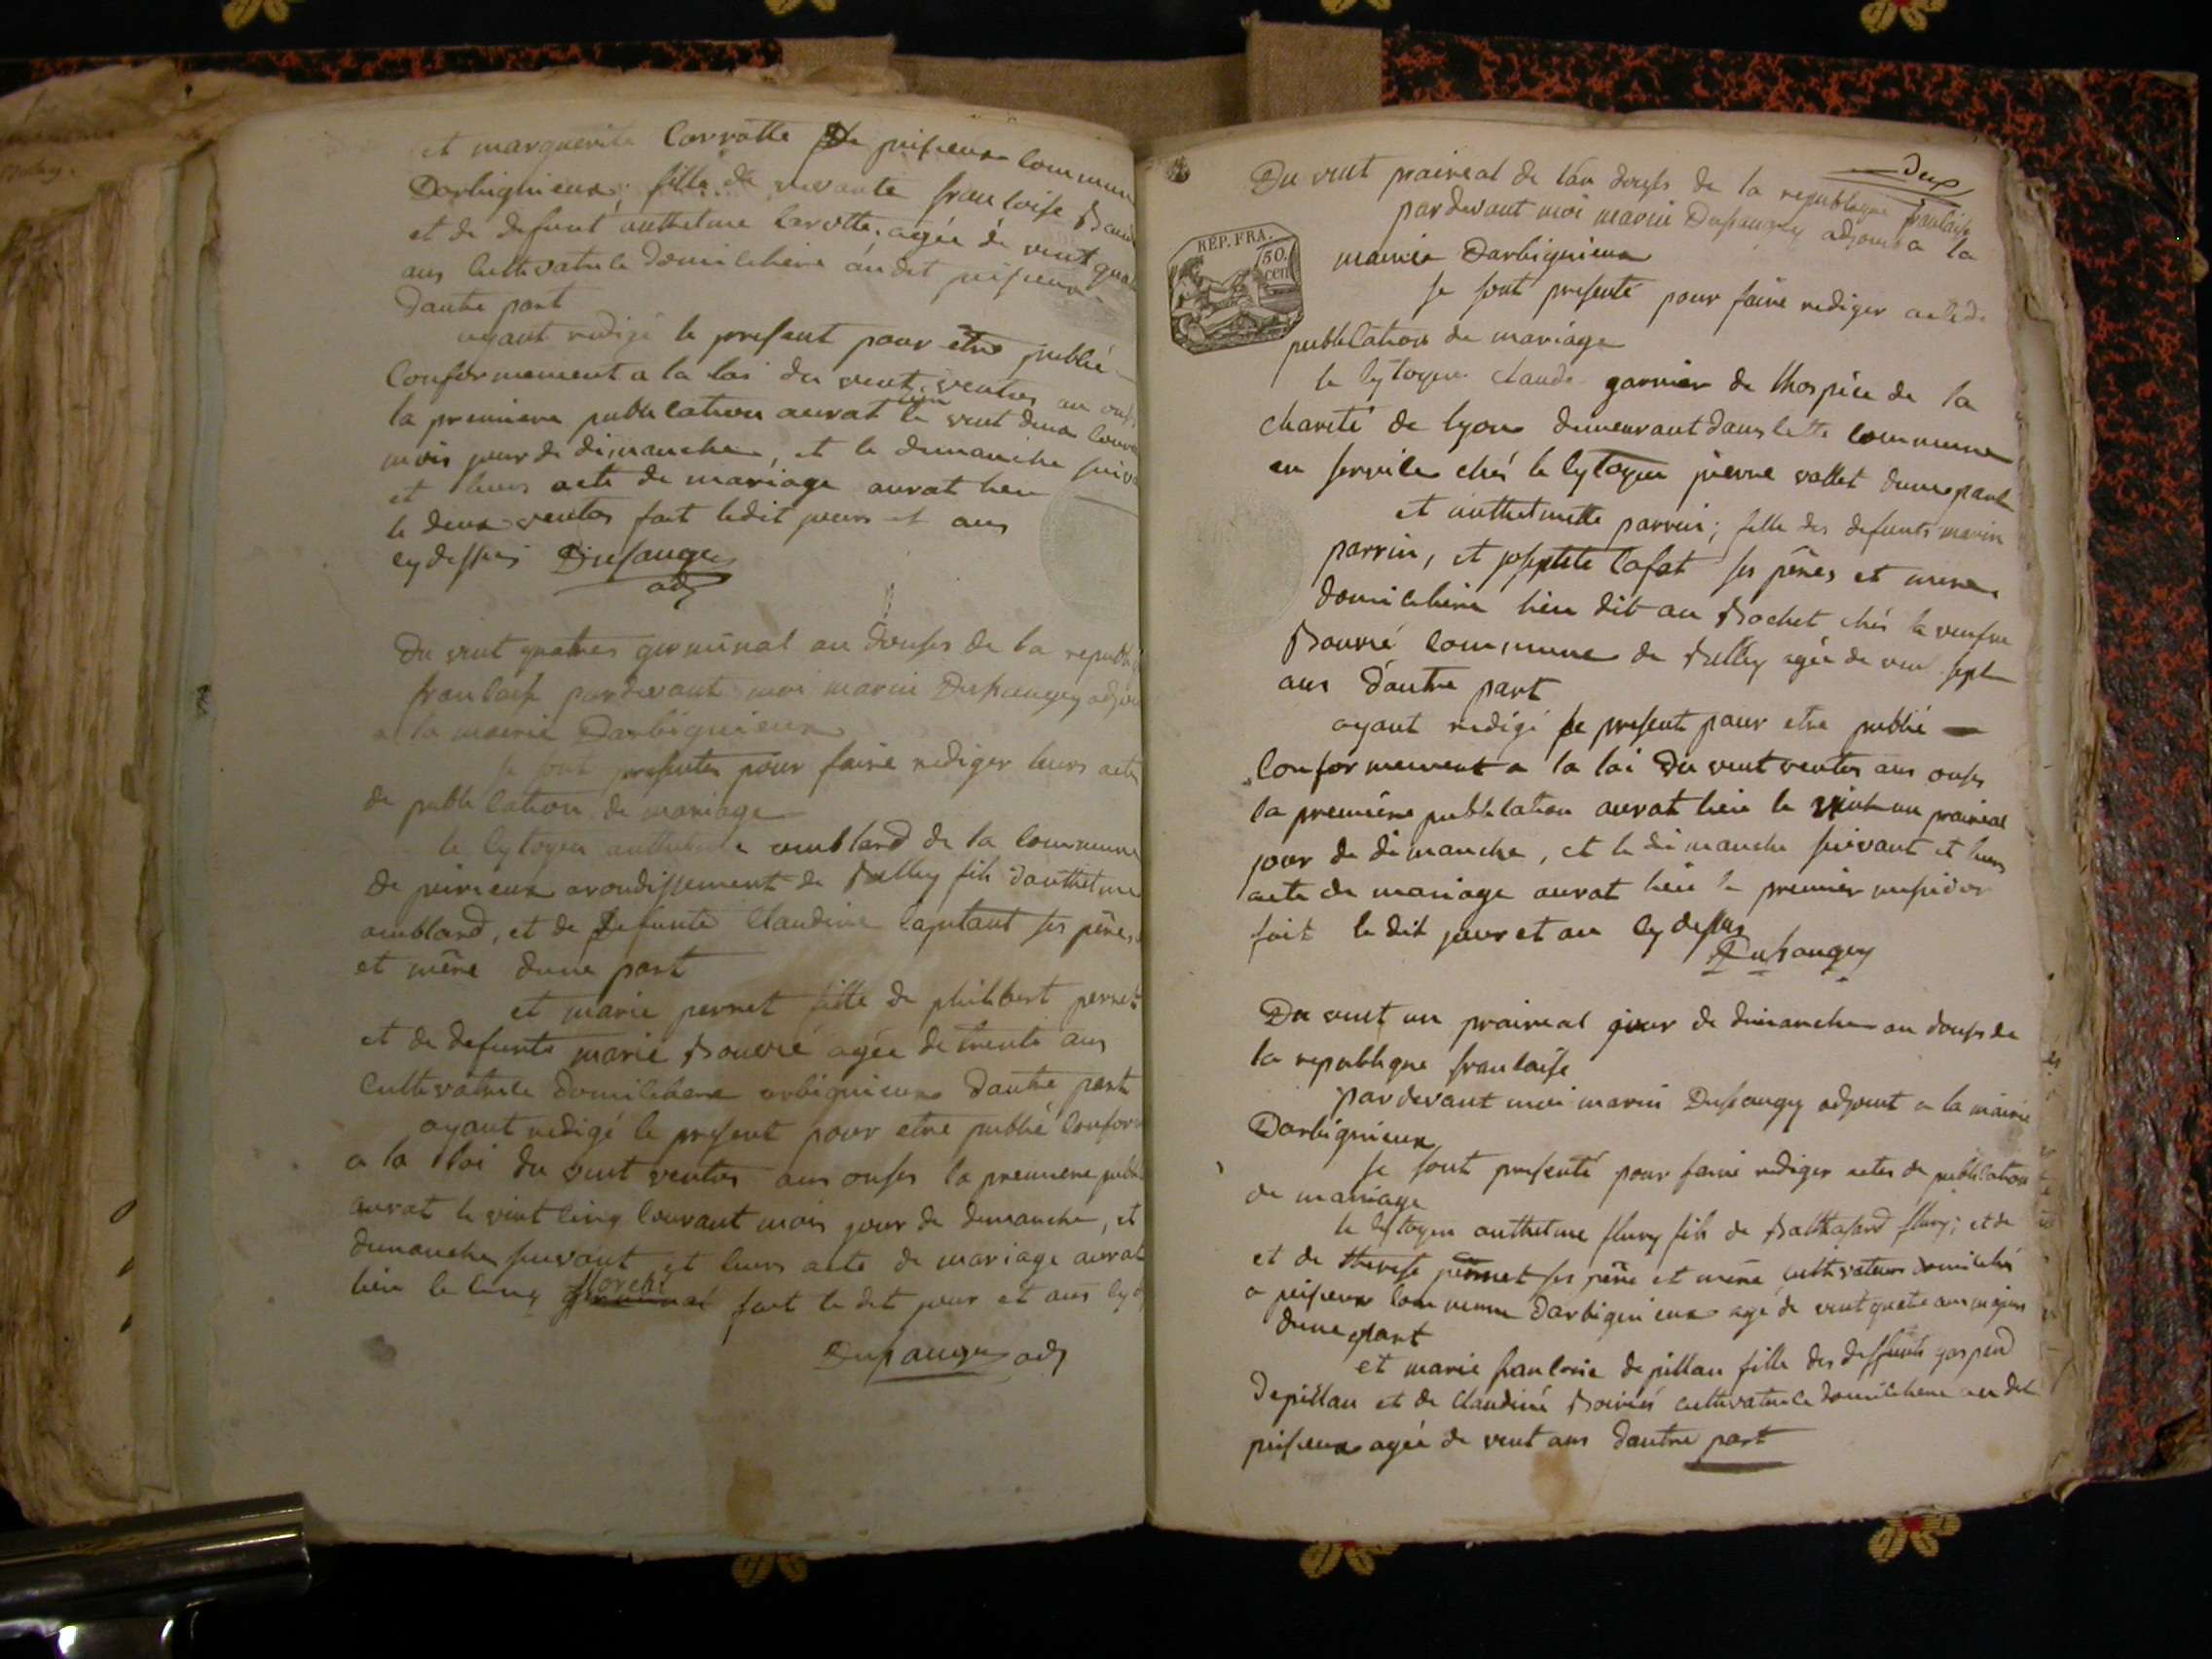 et marguerite Carrotte De peisieux commun
Darbignieux; fille de vivante francoise
et de defunt anthelme Carotte, agée de vint quat
ans Cultivatrice domiciliere audit peisieux
dautre part
ayant redigé le present pour être publié
Conformement a la loi du vent ventos an onse
la premiere publication aurat lieu le vint deux coura
mois jour de dimanche, et le dimanche suiva
et leurs acte de mariage aurat lieu
le deux ventos fait ledit jours et ans
cy dessus Dusaugey
adj
Du vint quatres germinal an douses de la republiq
francaise pardevant moi marin Dusaugey adjoi
a la mairie Darbignieux
se sont presentes pour faire rediger leurs actes
de publication de mariage
le Cytoyen anthelme amblard de la commune
de peirieux arondissement de Belley fils danthelme
amblard, et de defunte Claudine ses pères
et mère dune part
et marie perret fille de philibert perret
et de defunte marie Bouvié agée de trente ans
Cultivatrice domiciliere arbignieux dautre part
ayant redigé le present pour etre publié Conform
a la loi du vint ventos ans onses la premiere publi
aurat le vint cinq Courant mois jour de dimanche, et
dimanche suivant et leurs acte de mariage aurat
lieu le cinq floreal germinal fait le dit jour et ans cy d
Dusaugey adj
deux
Du vint praireal de lan douses de la republique francaise
pardevant moi marin Dusaugey adjoint a la
REP. FRA.
50.
cen
mairie Darbignieux
Se sont presenté pour faire rediger acte de
publication de mariage
le Cytoyen claude garnier de lhospice de la
charité de lyon demeurant dans cette commune
en service chés le Cytoyen pierre vallet dune part
et anthelmette parrin; fille des defunts marin
parrin, et josephte Cafat ses pères et mere
domiciliere lieu dit au Bochet chés la veufve
Bouvié Commune de Belley agée de vint sept
ans dautre part
ayant redigé le present pour etre publié
Conformement a la loi du vent ventos ans onses
la premiere publication aurat lieu le vint un praireal
jour de dimanche, et le dimanche suivant et leurs
acte de mariage aurat lieu le premier messidor
fait le dit jour et an cy dessus
Dusaugey
Du vint un praireal jour de dimanche an douses de
la republique francaise
pardevant moi marin Dusaugey adjoint a la mairie
Darbignieux
Se sont presenté pour faire rediger actes de publication
de mariage
le Cytoyen anthelme flury fils de Balthasard flury; et de
et de therese perret ses père et mère cultivateurs domiciliés
a peisieux commune Darbignieux agé de vint quatre ans majeur
dune part
et marie francoise depillau fille des deffunts gaspard
Depillau et de Claudine Boiviés cultivatrice domiciliere au dit
peisieux agée de vent ans dautre part